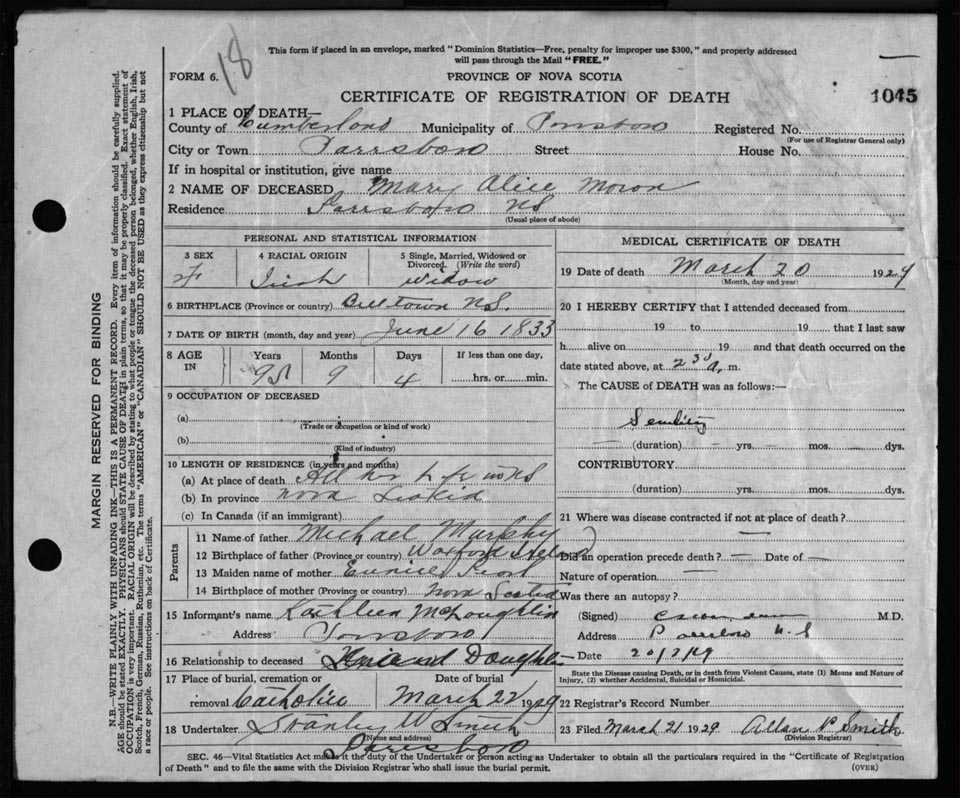 18
This form if placed in an envelope, marked "Dominion Statistics—Free, penalty for improper use $300," and properly addressed
will pass through the Mail "FREE."
FORM 6.
PROVINCE OF NOVA SCOTIA
CERTIFICATE OF REGISTRATION OF DEATH
1045
1 PLACE OF DEATH—
County of Cumberland Municipality of Parrsboro Registered No.
(For use of Registrar General only)
City or Town Parrsboro Street House No.
If in hospital or institution, give name
2 NAME OF DECEASED Mary Alice Moran
Residence Parrsboro NS
(Usual place of abode)
PERSONAL AND STATISTICAL INFORMATION
3 SEX 4 RACIAL ORIGIN 5 Single, Married, Widowed or
Divorced. (Write the word)
F Irish Widow
6 BIRTHPLACE (Province or country) Billtown N.S.
7 DATE OF BIRTH (month, day and year) June 16 1833
8 AGE
IN
Years Months Days If less than one day,
95 9 4 hrs. or min.
9 OCCUPATION OF DECEASED
(a)
(Trade or occupation or kind of work)
(b)
(Kind of industry)
10 LENGTH OF RESIDENCE (in years and months)
(a) At place of death All her Life NS
(b) In province Nova Scotia
(c) In Canada (if an immigrant)
Parents
11 Name of father Michael Murphy
12 Birthplace of father (Province or country) Wexford Ireland
13 Maiden name of mother Eunice
14 Birthplace of mother (Province or country) Nova Scotia
15 Informant's name Kathleen McLaughlin
Address Parrsboro
16 Relationship to deceased Grand Daughter
17 Place of burial, cremation or Date of burial
removal Catholic March 22 1929
18 Undertaker Stanley W Smith
(Name and address)
Parrsboro
MEDICAL CERTIFICATE OF DEATH
19 Date of death March 20 1929
(Month, day and year)
20 I HEREBY CERTIFY that I attended deceased from
19 to 19 that I last saw
h alive on 19 and that death occurred on the
date stated above, at 2 30 a. m.
The CAUSE OF DEATH was as follows:—
Senility
(duration) yrs. mos. dys.
CONTRIBUTORY
(duration) yrs. mos. dys.
21 Where was disease contracted if not at place of death?
Did an operation precede death? — Date of —
Nature of operation —
Was there an autopsy?
(Signed) M.D.
Address Parrsboro N.S
Date 20/3/29
State the Disease causing Death, or in death from Violent Causes, state (1) Means and Nature of
Injury, (2) whether Accidental, Suicidal or Homicidal.
22 Registrar's Record Number
23 Filed March 21 1929 Allan P Smith
(Division Registrar)
SEC. 46—Vital Statistics Act makes it the duty of the Undertaker or person acting as Undertaker to obtain all the particulars required in the "Certificate of Registration
of Death" and to file the same with the Division Registrar who shall issue the burial permit.
(OVER)
MARGIN RESERVED FOR BINDING
N.B.—WRITE PLAINLY WITH UNFADING INK—THIS IS A PERMANENT RECORD. Every item of information should be carefully supplied.
AGE should be stated EXACTLY. PHYSICIANS should STATE CAUSE OF DEATH in plain terms, so that it may be properly classified. Exact statement of
OCCUPATION is very important. RACIAL ORIGIN will be described by stating to what people or tongue the deceased person belonged, whether English, Irish,
Scotch, French, German, Russian, Ruthenian, etc. The terms "AMERICAN" or "CANADIAN" SHOULD NOT BE USED as they express citizenship but not
a race or people. See instructions on back of Certificate.